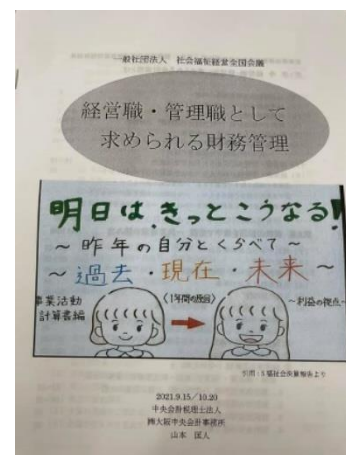 一般社団法人　社会福祉経営全国会議
経営職・管理職として
求められる財務管理
明日は、きっとこうなる!
～昨年の自分とくらべて～
～過去・現在・未来～
事業活動
計算書編
〈1年間の成長〉
～利益の視点～
2021.9.15／10.20
中央会計税理士法人
㈱大阪中央会計事務所